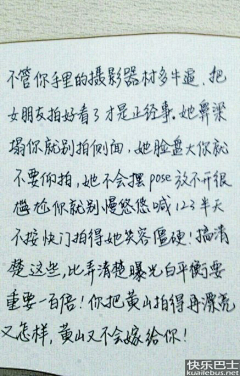 不管你手里的摄影器材多牛逼，把
女朋友拍好看了才是正经事。她鼻梁
塌你就别拍侧面，她脸盘大你就
不要仰拍，她不会摆pose放不开很
尴尬你就别慢悠悠喊123半天
不按快门拍得她笑容僵硬！搞清
楚这些，比弄清楚曝光白平衡要
重要一百倍！你把黄山拍得再漂亮
又怎样，黄山又不会嫁给你！
快乐巴士
kuaile8us.net